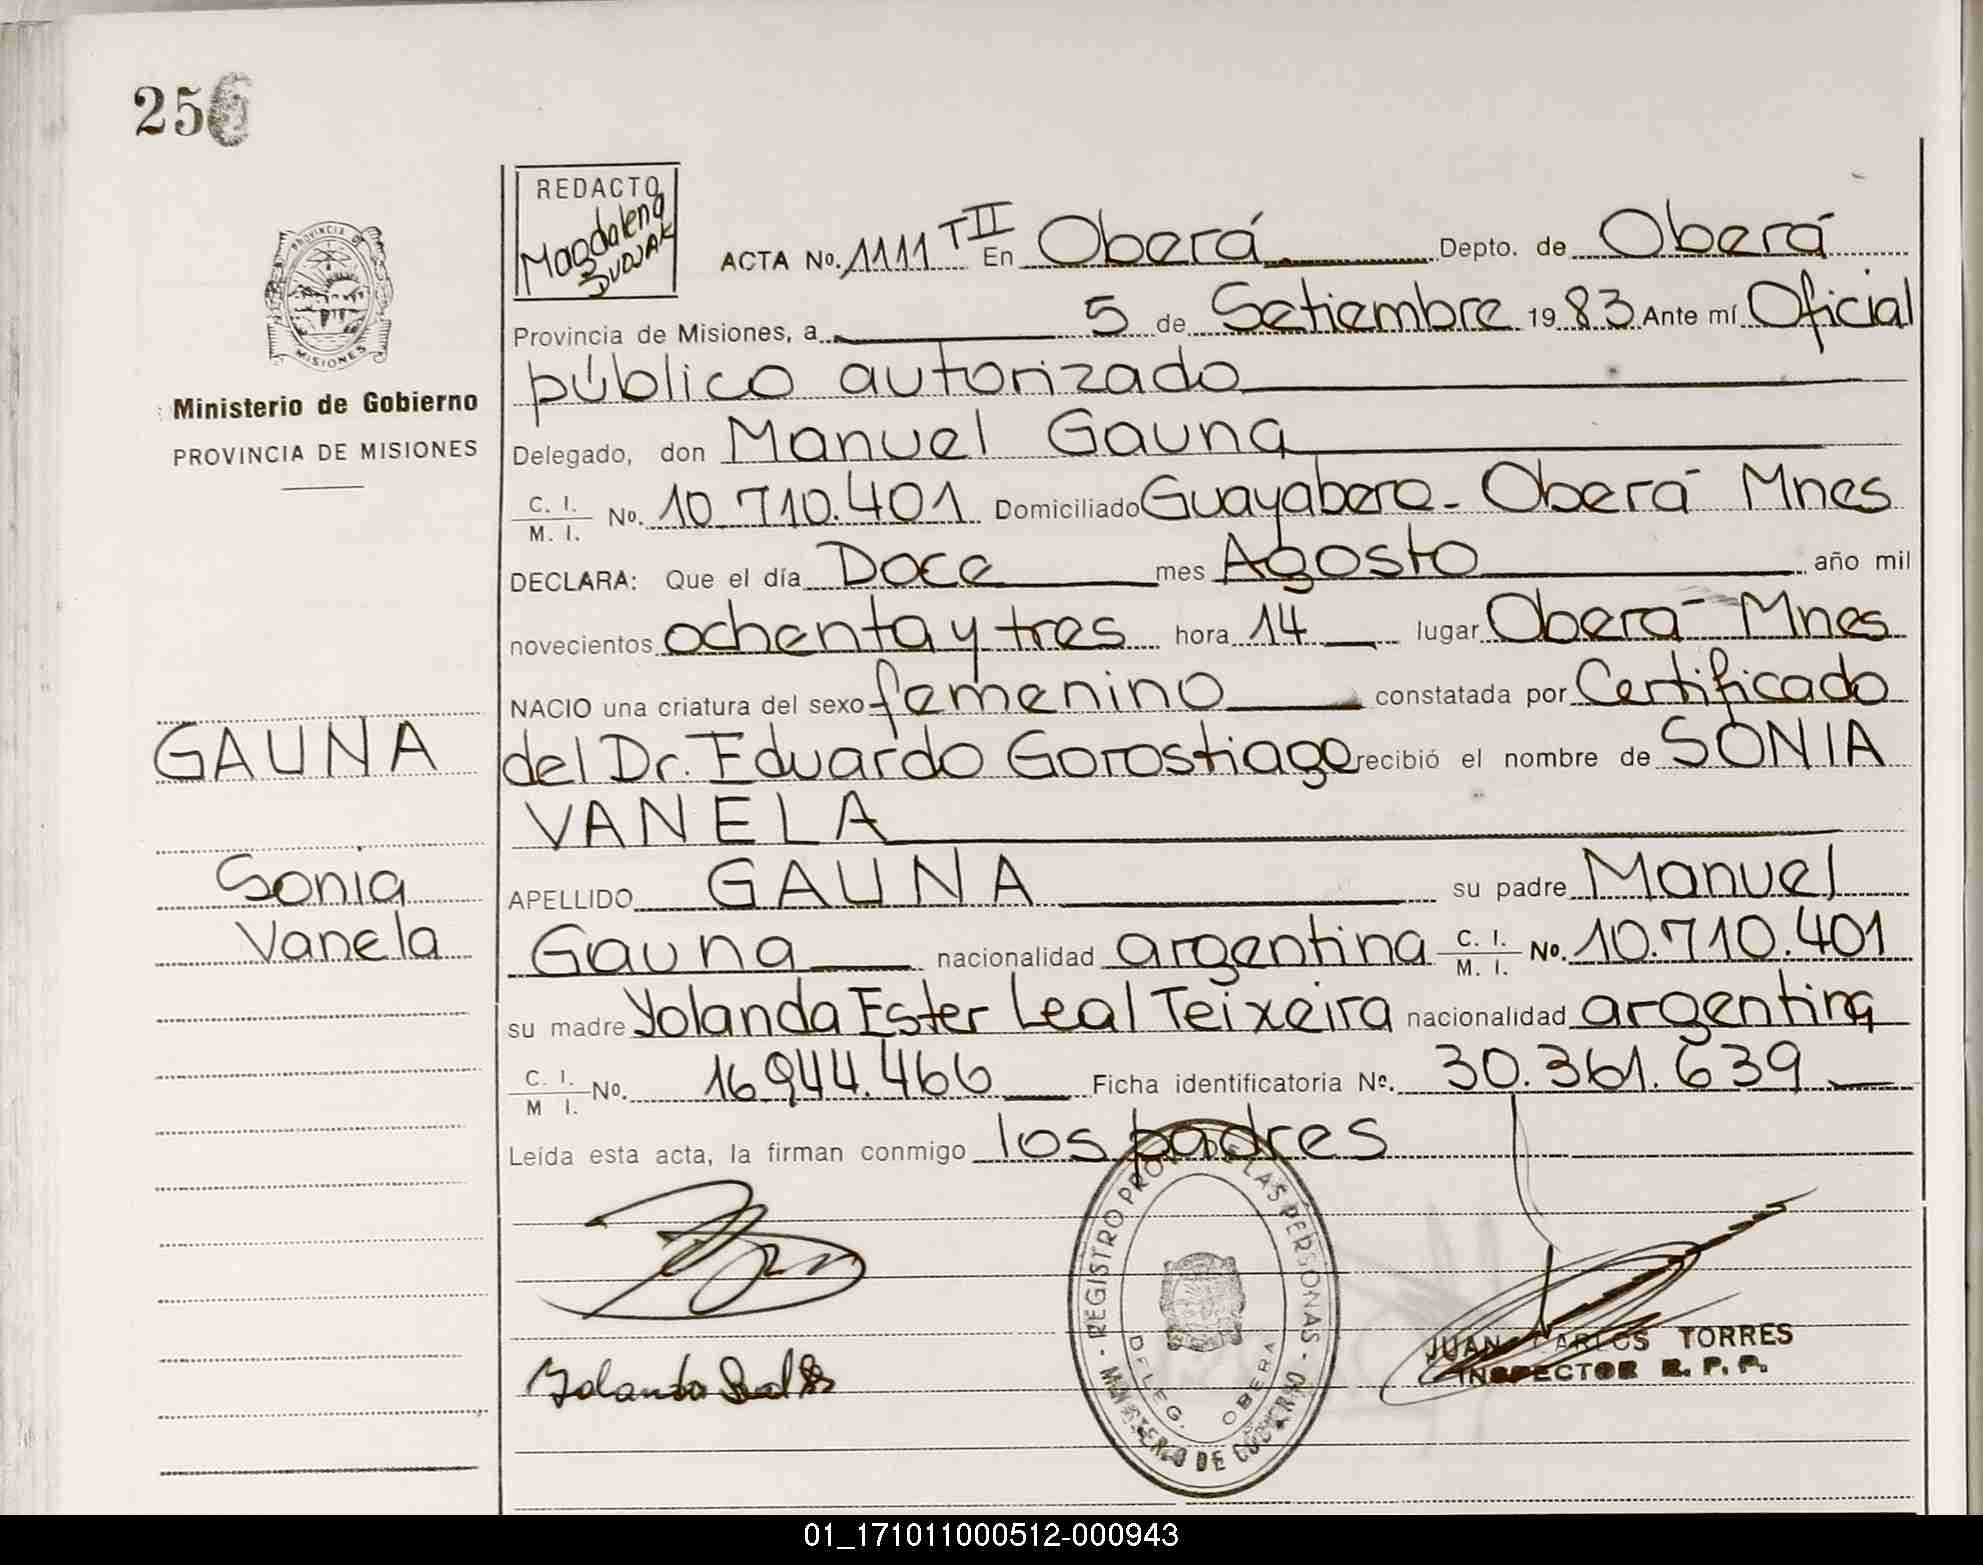 256
PROVINCIA DE
MISIONES
Ministerio de Gobierno
PROVINCIA DE MISIONES
GAUNA
Sonia
Vanela
REDACTO
Magdalena
DUDJAK
ACTA No. 1111 T II En Oberá Depto. de Oberá
Provincia de Misiones, a 5 de Setiembre 1983 Ante mí Oficial
público autorizado
Delegado, don Manuel Gauna
C. I. M. I. No. 10.710.401 Domiciliado Guayabera - Oberá Mnes
DECLARA: Que el día Doce mes Agosto año mil
novecientos ochenta y tres hora 14 lugar Oberá Mnes
NACIO una criatura del sexo femenino constatada por Certificado
del Dr. Eduardo Gorostiago recibió el nombre de SONIA
VANELA
APELLIDO GAUNA su padre Manuel
Gauna nacionalidad argentina C. I. M. I. No. 10.710.401
su madre Yolanda Ester Leal Teixeira nacionalidad argentina
C. I. M I. No. 16.944.466 Ficha identificatoria Nº. 30.361.639
Leída esta acta, la firman conmigo los padres
REGISTRO PROV. DE LAS PERSONAS - MINISTERIO DE GOBIERNO -
DELEG. OBERA
Yolanda
JUAN CARLOS TORRES
INSPECTOR R. P. P.
01_171011000512-000943